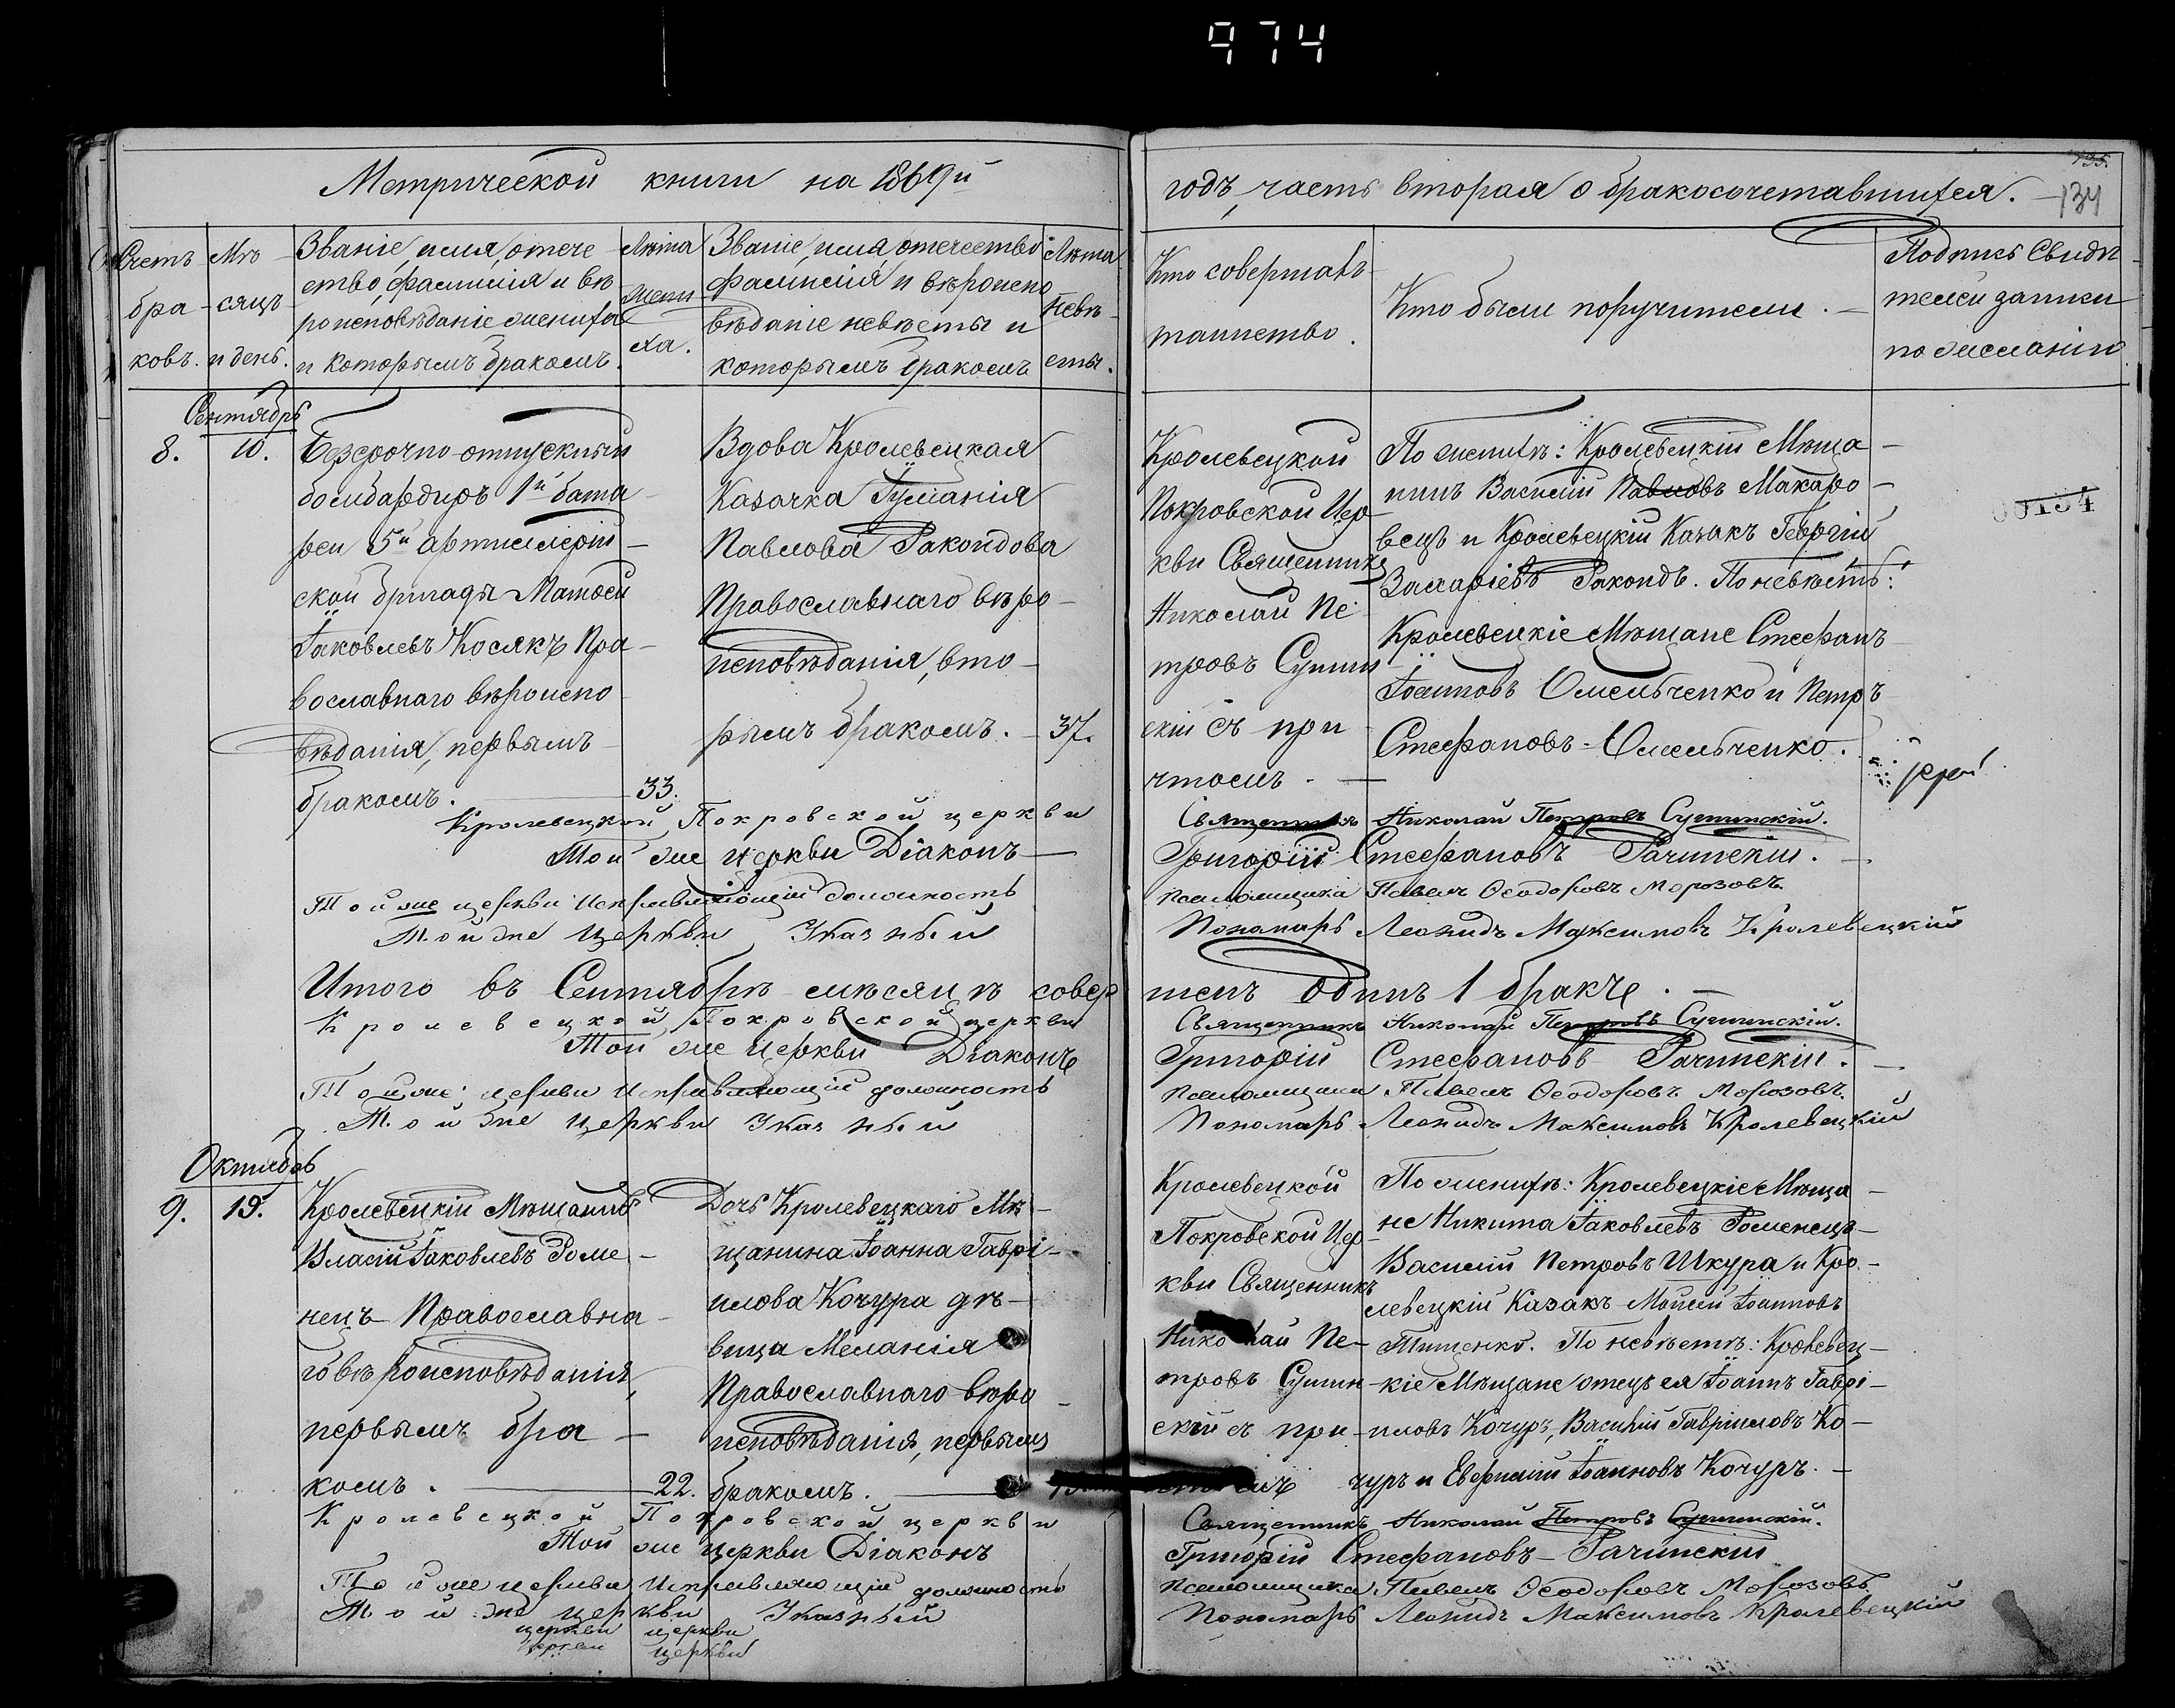 974
Метрической книги на 1869й
годъ, часть вторая о бракосочетавшихся.
135.
134
Счетъ
бра-
ковъ.
Мѣ-
сяцъ
и день.
Званіе, имя, отече
ство, фамилія и вѣ
роисповѣданіе жениха
и которымъ бракомъ.
Лѣта
жени
ха.
Званіе, имя, отечество
фамилія и вѣроиспо
вѣданіе невѣсты и
которымъ бракомъ
Лѣта
невѣ-
сты.
Кто совершалъ
таинство.
Кто были поручители.
Подпись свидѣ
телей записи
по желанію
Сентябрь
8.
10.
Безсрочно-отпускный
бомбардиръ 1й бата-
реи 5й артиллерій-
ской бригады Матѳей
Іаковлевъ Косякъ Пра-
вославнаго вѣроиспо
вѣданія, первымъ
бракомъ.
33.
Вдова Кролевецкая
Казачка Гуліанія
Павлова Ракоидова
Православнаго вѣро-
исповѣданія, вто-
рымъ бракомъ.
37.
Кролевецкой
Покровской Цер-
кви Священникъ
Николай Пе-
тровъ Сушин-
скій съ при
чтомъ.
По женихѣ: Кролевецкій Мѣща-
нинъ Василій Павловъ Макаро-
вецъ и Кролевецкій Казакъ Георгій
Захаріевъ Ракоидъ. По невѣстѣ:
Кролевецкіе Мѣщане Стефанъ
Іоанновъ Омельченко и Петръ
Стефановъ Омельченко.
00134
Кролевецкой Покровской церкви
Священникъ Николай Петровъ Сушинскій.
Той же церкви Діаконъ
Григорій Стефановъ Рачинскій.
Той же церкви Исправляющій должность
псаломщика Павелъ Ѳеодоровъ Морозовъ.
Той же Церкви Указный
Пономарь Леонидъ Максимовъ Кролевецкий
Итого въ Сентябрѣ мѣсяцѣ совер
шенъ одинъ 1 бракъ.
Кролевецкой Покровской церкви
Священникъ Николай Петровъ Сушинскій.
Той же Церкви Діаконъ
Григорій Стефановъ Рачинскій.
Той же церкви Исправляющій должность
псаломщика Павелъ Ѳеодоровъ Морозовъ.
Той же Церкви Указный
Пономарь Леонидъ Максимовъ Кролевецкій
Октябрь
9.
19.
Кролевецкій Мѣщанинъ
Власій Іаковлевъ Роме-
нецъ Православна-
го вѣроисповѣданія,
первымъ бра-
комъ.
22.
Дочь Кролевецкаго Мѣ-
щанина Іоанна Гаврі-
илова Кочура дѣ-
вица Меланія
Православнаго вѣро-
исповѣданія, первымъ
бракомъ.
Кролевецкой
Покровской Цер-
кви Священникъ
Николай Пе-
тровъ Сушин-
скій съ при-
По женихѣ: Кролевецкіе Мѣща-
не Никита Іаковлевъ Роменецъ
Василій Петровъ Шкура и Кро-
левецкій Казакъ Моисей Іоанновъ
Тищенко. По невѣстѣ: Кролевец-
кіе Мѣщане отецъ ея Іоаннъ Гаврі-
иловъ Кочуръ, Василій Гавріиловъ Ко-
чуръ и Евфимій Іоанновъ Кочуръ.
Кролевецкой Покровской церкви
Священникъ Николай Петровъ Сушинскій.
Той же церкви Діаконъ
Григорій Стефановъ Рачинскій
Той же церкви Исправляющій должность
псаломщика Павелъ Ѳеодоровъ Морозовъ
Той же церкви Указный
Пономарь Леонидъ Максимовъ Кролевецкій
церкви церкви
церкви церкви